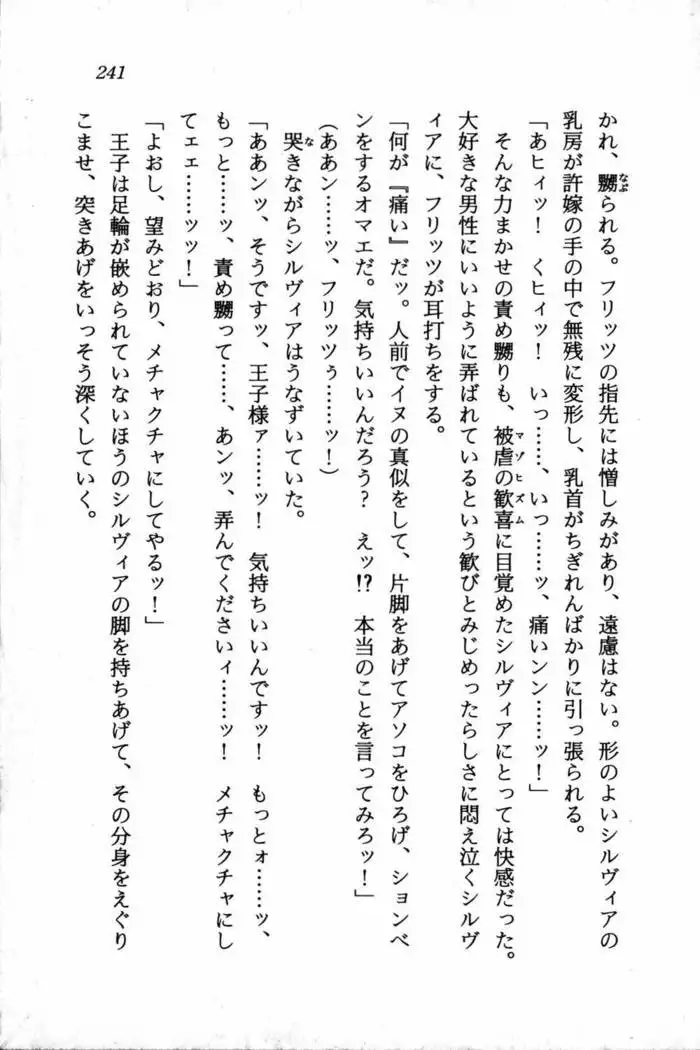 241
かれ、嬲られる。フリッツの指先には憎しみがあり、遠慮はない。形のよいシルヴィアの
乳房が許嫁の手の中で無残に変形し、乳首がちぎれんばかりに引っ張られる。
「あヒィッ！　くヒィッ！　いっ……、いっ……ッ、痛いンン……ッ！」
そんな力まかせの責め嬲りも、被虐の歓喜に目覚めたシルヴィアにとっては快感だった。
大好きな男性にいいように弄ばれているという歓びとみじめったらしさに悶え泣くシルヴ
ィアに、フリッツが耳打ちをする。
「何が『痛い』だッ。人前でイヌの真似をして、片脚をあげてアソコをひろげ、ションベ
ンをするオマエだ。気持ちいいんだろう？　えッ!?　本当のことを言ってみろッ！」
（ああン……ッ、フリッツぅ……ッ！）
哭きながらシルヴィアはうなずいていた。
「ああンッ、そうですッ、王子様ァ……ッ！　気持ちいいんですッ！　もっとォ……ッ、
もっと……ッ、責め嬲って……、あンッ、弄んでくださいィ……ッ！　メチャクチャにし
てェェ……ッッ！」
「よおし、望みどおり、メチャクチャにしてやるッ！」
王子は足輪が嵌められていないほうのシルヴィアの脚を持ちあげて、その分身をえぐり
こませ、突きあげをいっそう深くしていく。